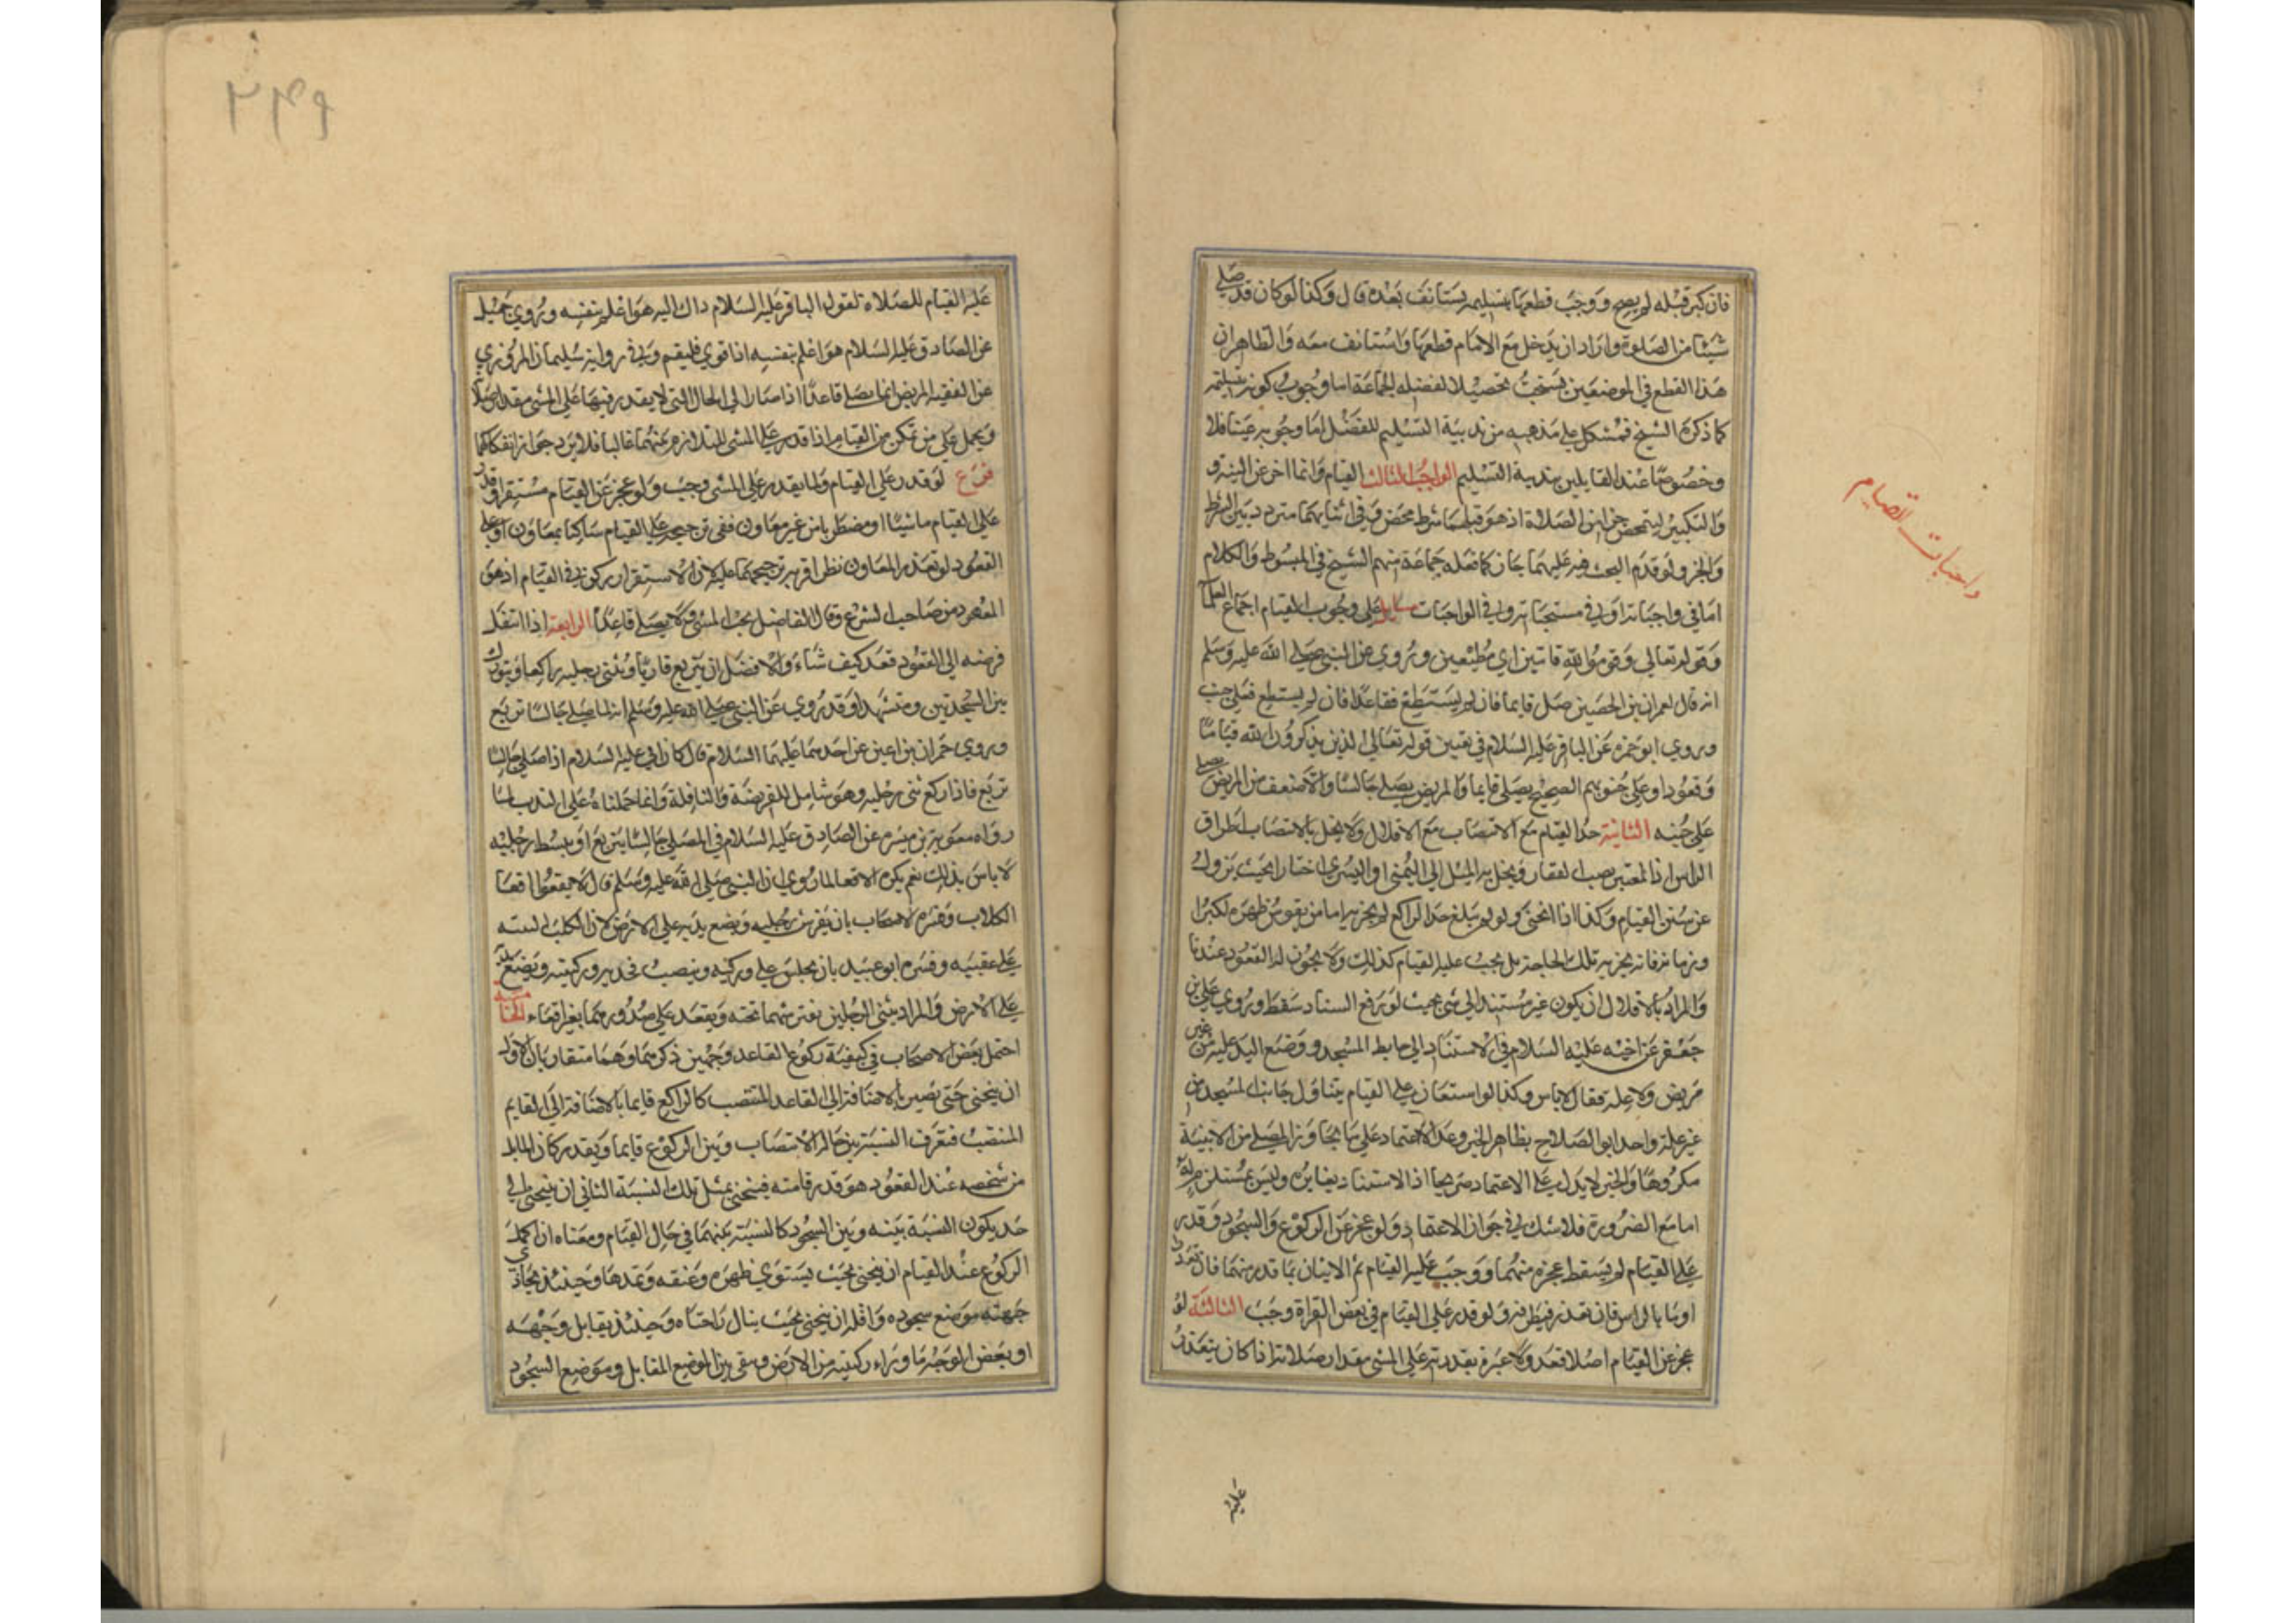 فان كبر قبله لم يصح ووجب قطعها بتسليمه يستانف بعده قال وكذا لو كان قد صلى
شيئا من الصلوة واراد ان يدخل مع الامام قطعها واستانف معه والظاهر ان
هذا القطع في الموضعين يستحب تحصيلا لفضيلة الجماعة اما وجوب كونه بتسليمة
كما ذكره الشيخ فمشكل على مذهبه من ندبية التسليم للفصل اما وجوبه عينا فلا
وخصوصا عند القايلين بندبية التسليم الواجب الثالث القيام وانما اخر عن النية و
والتكبير ليتمحض جزا من الصلاة اذ هو قبلهما شرط محض وفي اثنايهما متردد بين الشرط
والجزو لو قدم البحث فيه عليهما جاز كما فعله جماعة منهم الشيخ في المبسوط والكلام
اما في واجباته او في مستحباته وفي الواجبات مسايل على وجوب القيام اجماع العلما
وقوله تعالى وقوموا لله قانتين اي مطيعين وروي عن النبي صلى الله عليه وسلم
انه قال لعمران بن الحصين صل قايما فان لم يستطع فقاعدا فان لم يستطع فعلى جنب
وروى ابو حمزه عن الباقر عليه السلام في تفسير قوله تعالى الذين يذكرون الله قياما
وقعودا وعلى جنوبهم الصحيح يصلى قايما والمريض يصلى جالسا والاضعف من المريض يصلى
على جنبه الثانية حد القيام مع الانتصاب مع الاقلال ولا يخل بالانتصاب اطراق
الراس اذ المعتبر نصب الفقار ويخل به الميل الى اليمنى او اليسرى اختيارا بحيث يزول
عن سنن القيام وكذا اذا انحنى ولو لم يبلغ حد الراكع لم يجزيه اما من تقوس ظهره لكبر او
وزمانة فانه يجزيه تلك الحاجة بل يجب عليه القيام كذلك ولا يجوز له القعود عندنا
والمراد بالاقلال ان يكون غير مستند الى شي بحيث لو رفع السناد سقط وروى على بن
جعفر عن اخيه عليه السلام في الاستناد الى حايط المسجد ووضع اليد عليه من غير
مرض ولا علة فقال لا باس وكذا لو استعان على القيام يتناول جانب المسجد من
غير علة واحد ابو الصلاح بظاهر الخبر وعد الاعتماد على ما يجاور المصلى من الابنية
مكروها والخبر لا يدل على الاعتماد صريحا اذ الاستناد يغايره وليس بمستلزم له
اما مع الضرورة فلا شك في جواز الاعتماد ولو عجز عن الركوع والسجود وقدر
على القيام لم يسقط بعجزه عنهما ووجب عليه القيام ثم الاتيان بما قدر منهما فان تعذرا
اوما بالراس فان تعذر فبطرفه ولو قدر على القيام في بعض القراة وجب الثالثة لو
عجز عن القيام اصلا قعد ولا عبرة بقدرته على المشى مقدار صلاته اذا كان يتعذر
عليه
واجبات القيام
عليه القيام للصلاة لقول الباقر عليه السلام ذاك اليه هو اعلم بنفسه وروى جميل
عن الصادق عليه السلام هو اعلم بنفسه اذا قوي فليقم وفي رواية سليمان المروزي
عن الفقيه المريض انما يصلى قاعدا اذا صار الى الحال التي لا يقدر فيها على المشى مقدار صلاته
ويحمل على من تمكن من القيام اذا قدر على المشى للتلازم بينهما غالبا فلا يرد جواز انفكاكهما
فرع لو قدر على القيام ولما يقدر على المشى وجب ولو عجز عن القيام مستقرا وقدر
على القيام ماشيا او مضطربا من غير معاون ففي ترجيحه على القيام ساكنا بمعاون او على
القعود لو تعذر المعاون نظر اقربه ترجيحهما عليه لان الاستقرار ركن في القيام اذ هو
المعهود من صاحب الشرع وقال الفاضل يجب المشى ولا يصلى قاعدا الرابعة اذا انتقل
فرضه الى القعود قعد كيف شاء والافضل ان يتربع قاريا ويثنى رجليه راكعا ويتورك
بين السجدتين ومتشهدا وقد روي عن النبي صلى الله عليه وسلم انه لما صلى جالسا تربع
وروى حمران بن اعين عن احدهما عليهما السلام قال كان ابي عليه السلام اذا صلى جالسا
تربع فاذا ركع ثنى رجليه وهو شامل للفريضة والنافلة وانما حملناه على الندب لما
رواه معوية بن ميسره عن الصادق عليه السلام في المصلى جالسا يتربع او يبسط رجليه
لا باس بذلك نعم يكره الاقعا لما روي ان النبي صلى الله عليه وسلم قال لا تقعوا اقعا
الكلاب وفسره الاصحاب بان يفرش رجليه ويضع يديه على الارض لان الكلب اليته
على عقبيه وفسره ابو عبيد بان يجلس على وركيه وينصب فخديه وركبتيه ويضع يديه
على الارض والمراد بثنى الرجلين نفترشهما تحته ويقعد على صدورهما بغير اقعاء الخامسة
احتمل بعض الاصحاب في كيفية ركوع القاعد وجهين ذكرهما وهما متقاربان الاول
ان ينحنى حتى يصير بالاضافة الى القاعد المنتصب كالراكع قايما بالاضافة الى القايم
المنتصب فتعرف النسبة بين حالة الانتصاب وبين الركوع قايما ويقدر كان المايل
من شخصه عند القعود هو قدر قامته فينحنى بمثل تلك النسبة الثاني ان ينحنى الى
حد يكون النسبة بينه وبين السجود كالنسبة بينهما في حال القيام ومعناه ان اكمل
الركوع عند القيام ان ينحنى بحيث يستوي ظهره وعنقه ويمدها وحينئذ يحاذي
جبهته موضع سجوده واقله ان ينحنى بحيث ينال راحتاه وحينئذ يقابل وجهه
او بعض الوجه ما وراء ركبتيه من الارض ويبقى بين الموضع المقابل وموضع السجود